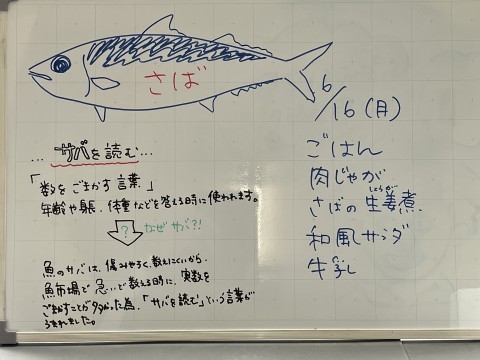 さば
6/16(月)
ごはん
肉じゃが
さばの生姜煮
しょうが
和風サラダ
牛乳
…サバを読む…
「数をごまかす言葉」
年齢や身長、体重などを答える時に使われます。
? なぜサバ?!
魚のサバは、傷みやすく、数えにくいから
魚市場で急いで数える時に、実数を
ごまかすことが多かった為、「サバを読む」という言葉が
うまれました。